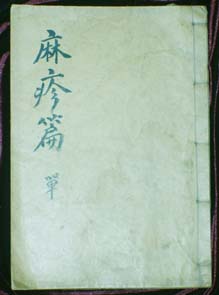 麻疹篇
單